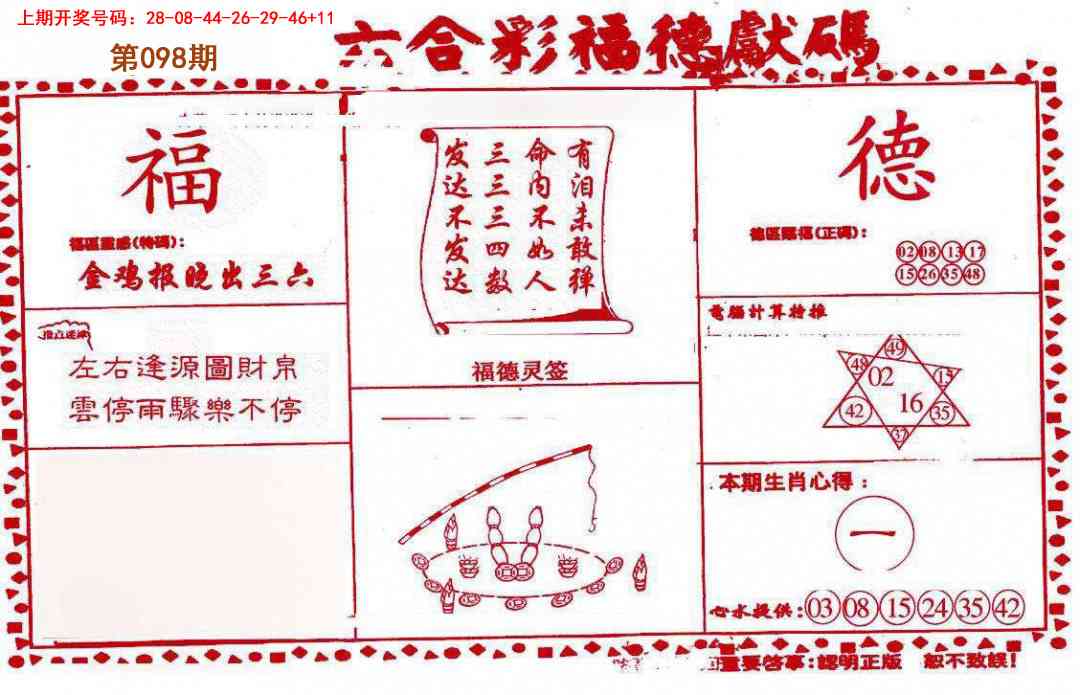 上期开奖号码：28-08-44-26-29-46+11
第098期
六合彩福德獻碼
福
福區靈感(特碼)：
金鸡报晚出三六
左右逢源圖財帛
雲停雨驟樂不停
有泪未敢弹
命内不如人
三三三四数
发达不发达
福德灵签
德
德區賜福(正碼)：
02 08 13 17
15 26 35 48
電腦計算特推
49
48 02 15
42 16 35
37
本期生肖心得：
一
心水提供：03 08 15 24 35 42
重要啓事：認明正版 恕不致誤！